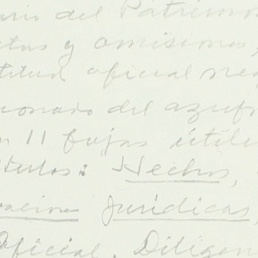 del Patrimon
y omisiones,
oficial neg
ionado del azufr
n 11 fojas útile
títulos: Hechos,
raciones Jurídicas,
Oficial. Diligen